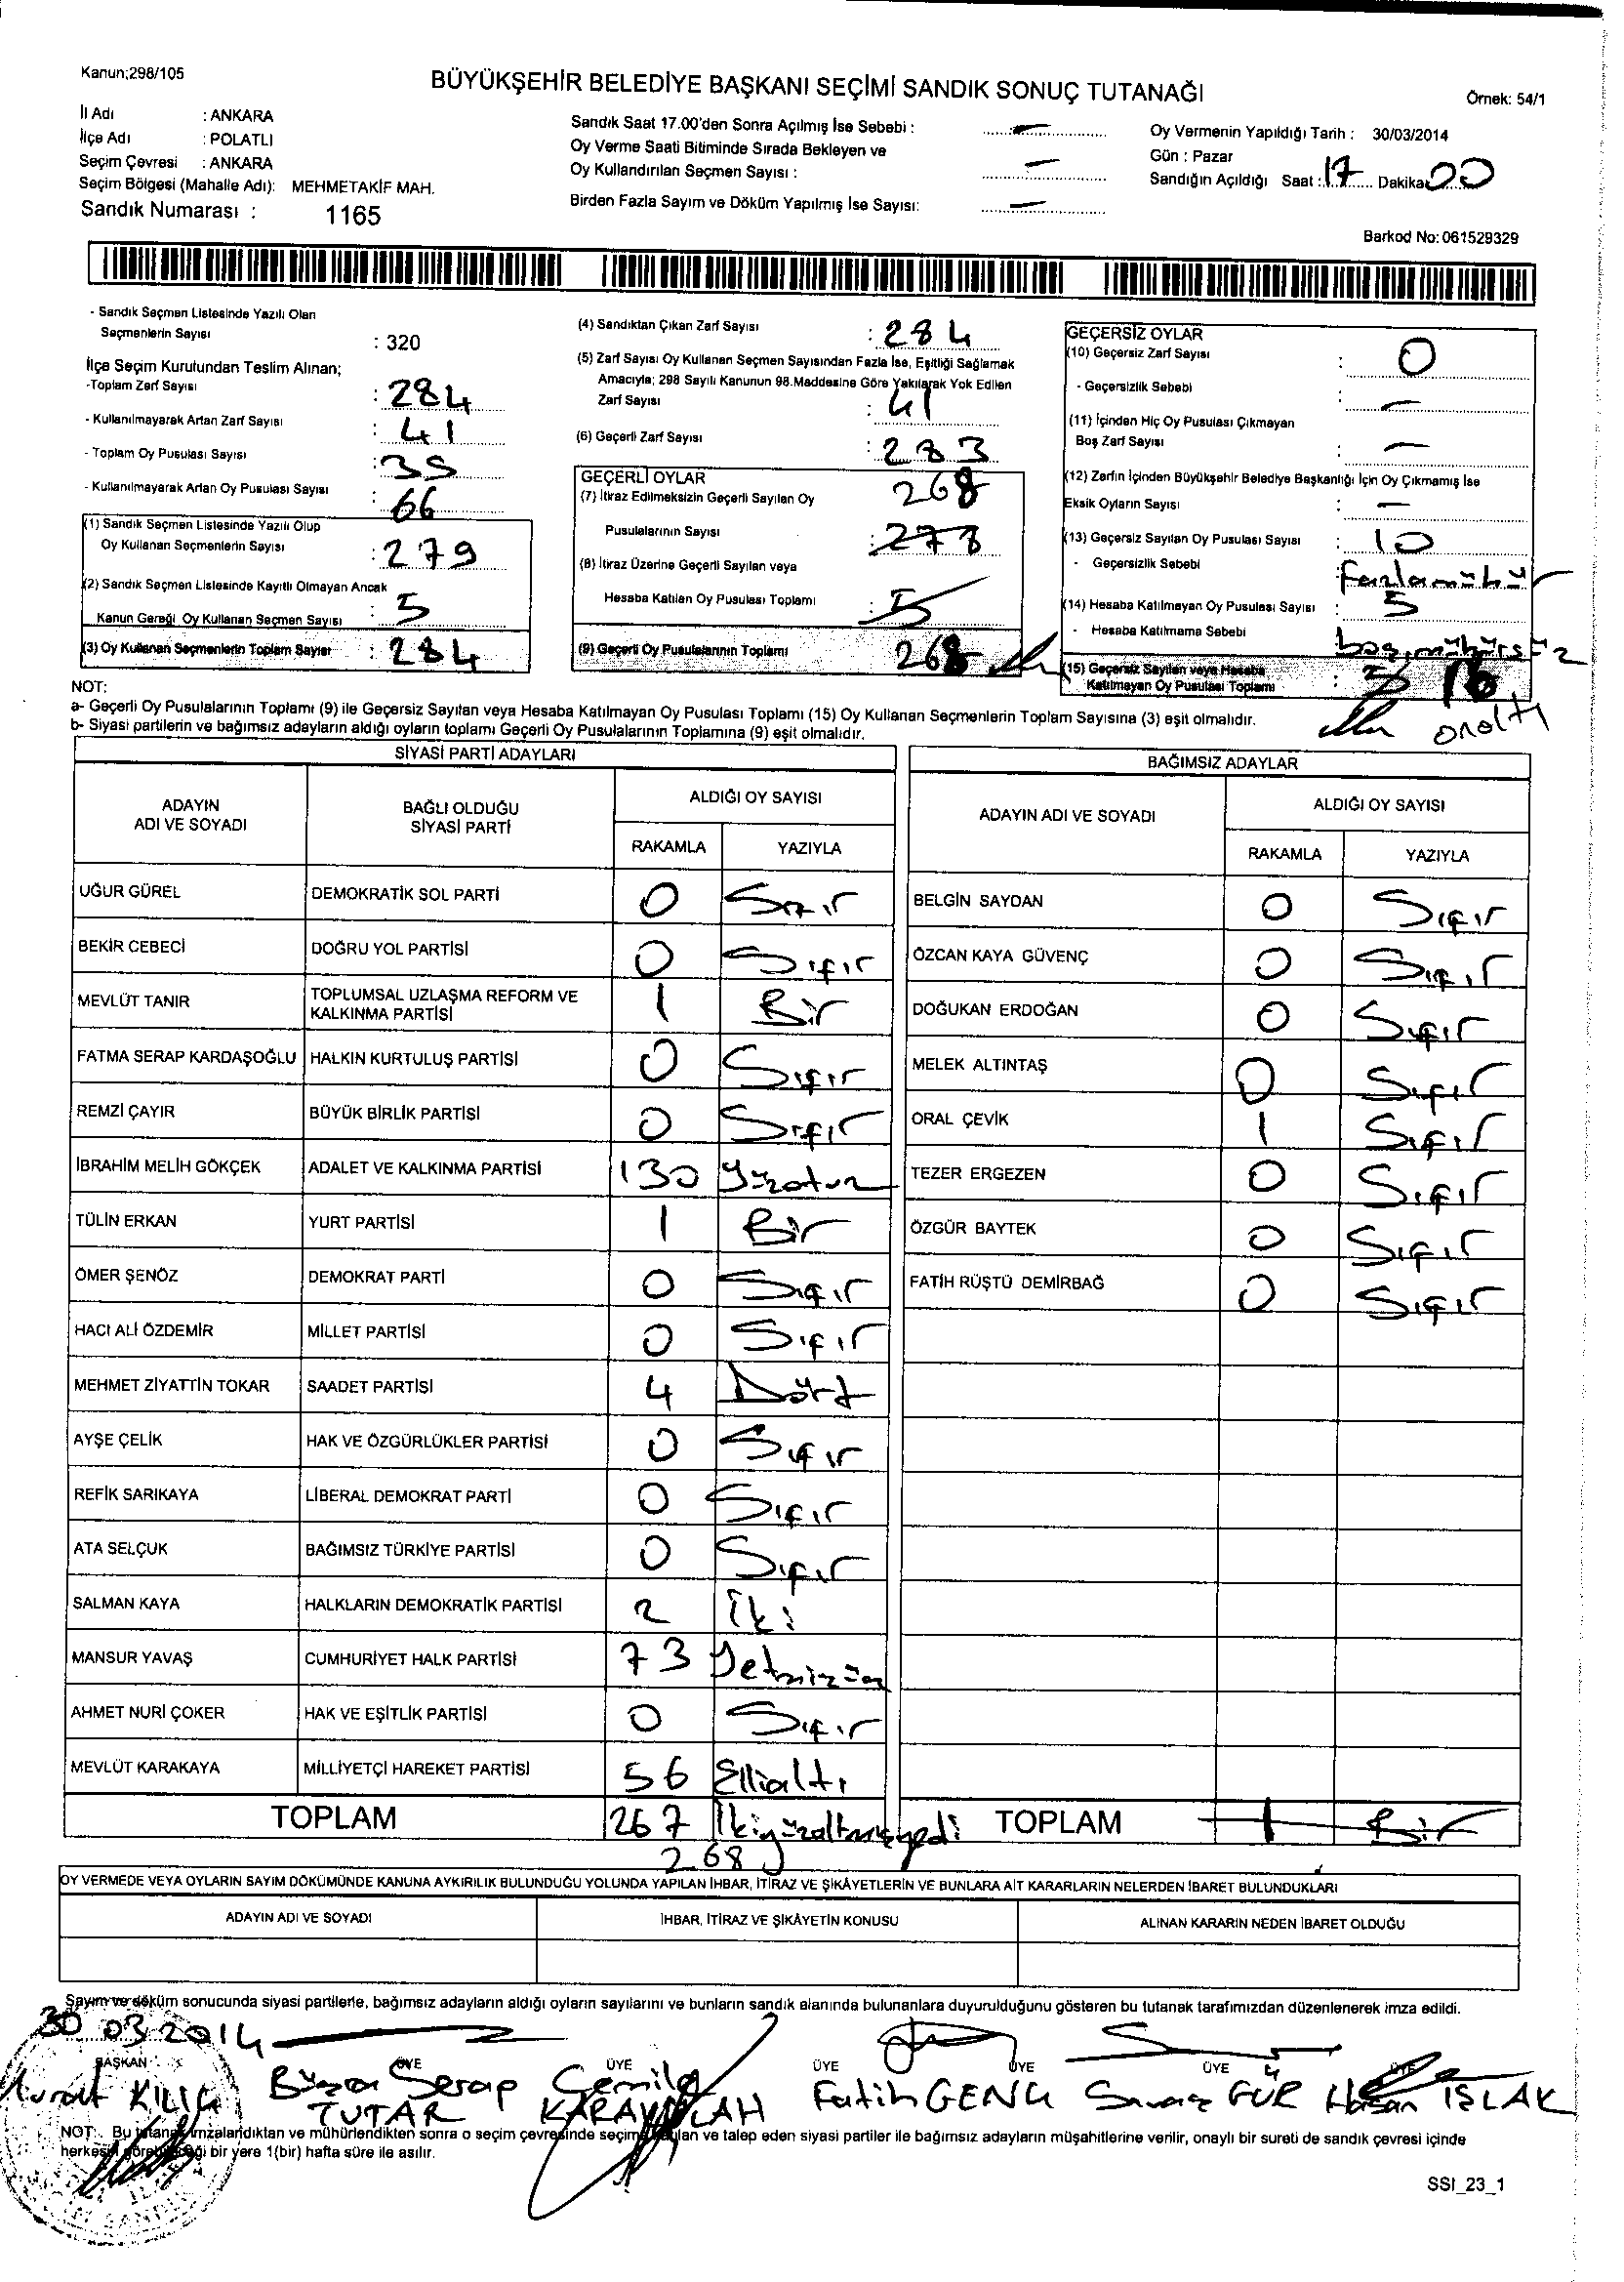 Kanun;298/105
BÜYÜKŞEHİR BELEDİYE BAŞKANI SEÇİMİ SANDIK SONUÇ TUTANAĞI
Örnek: 54/1
İl Adı : ANKARA
İlçe Adı : POLATLI
Seçim Çevresi : ANKARA
Seçim Bölgesi (Mahalle Adı): MEHMETAKİF MAH.
Sandık Numarası : 1165
Sandık Saat 17.00'den Sonra Açılmış İse Sebebi : –
Oy Verme Saati Bitiminde Sırada Bekleyen ve
Oy Kullandırılan Seçmen Sayısı : –
Birden Fazla Sayım ve Döküm Yapılmış İse Sayısı: –
Oy Vermenin Yapıldığı Tarih : 30/03/2014
Gün : Pazar
Sandığın Açıldığı Saat : 17 Dakika 00
Barkod No: 061529329
- Sandık Seçmen Listesinde Yazılı Olan
Seçmenlerin Sayısı : 320
İlçe Seçim Kurulundan Teslim Alınan;
-Toplam Zarf Sayısı : 284
- Kullanılmayarak Artan Zarf Sayısı : 41
- Toplam Oy Pusulası Sayısı : 35
- Kullanılmayarak Artan Oy Pusulası Sayısı : 66
(1) Sandık Seçmen Listesinde Yazılı Olup
Oy Kullanan Seçmenlerin Sayısı : 279
(2) Sandık Seçmen Listesinde Kayıtlı Olmayan Ancak
Kanun Gereği Oy Kullanan Seçmen Sayısı : 5
(3) Oy Kullanan Seçmenlerin Toplam Sayısı : 284
(4) Sandıktan Çıkan Zarf Sayısı : 284
(5) Zarf Sayısı Oy Kullanan Seçmen Sayısından Fazla İse, Eşitliği Sağlamak
Amacıyla; 298 Sayılı Kanunun 98.Maddesine Göre Yakılarak Yok Edilen
Zarf Sayısı : 41
(6) Geçerli Zarf Sayısı : 283
GEÇERLİ OYLAR
(7) İtiraz Edilmeksizin Geçerli Sayılan Oy 268
Pusulalarının Sayısı : 273
(8) İtiraz Üzerine Geçerli Sayılan veya
Hesaba Katılan Oy Pusulası Toplamı : 5
(9) Geçerli Oy Pusulalarının Toplamı 268
GEÇERSİZ OYLAR
(10) Geçersiz Zarf Sayısı : 0
- Geçersizlik Sebebi : –
(11) İçinden Hiç Oy Pusulası Çıkmayan
Boş Zarf Sayısı : –
(12) Zarfın İçinden Büyükşehir Belediye Başkanlığı İçin Oy Çıkmamış İse
Eksik Oyların Sayısı : –
(13) Geçersiz Sayılan Oy Pusulası Sayısı : 10
- Geçersizlik Sebebi : Fazlamühür
(14) Hesaba Katılmayan Oy Pusulası Sayısı : 5
- Hesaba Katılmama Sebebi boş,mühürsüz
(15) Geçersiz Sayılan veya Hesaba
Katılmayan Oy Pusulası Toplamı : 16
onaltı
NOT:
a- Geçerli Oy Pusulalarının Toplamı (9) ile Geçersiz Sayılan veya Hesaba Katılmayan Oy Pusulası Toplamı (15) Oy Kullanan Seçmenlerin Toplam Sayısına (3) eşit olmalıdır.
b- Siyasi partilerin ve bağımsız adayların aldığı oyların toplamı Geçerli Oy Pusulalarının Toplamına (9) eşit olmalıdır.
SİYASİ PARTİ ADAYLARI
ADAYIN ADI VE SOYADI BAĞLI OLDUĞU SİYASİ PARTİ ALDIĞI OY SAYISI
RAKAMLA YAZIYLA
UĞUR GÜREL DEMOKRATİK SOL PARTİ 0 Sıfır
BEKİR CEBECİ DOĞRU YOL PARTİSİ 0 Sıfır
MEVLÜT TANIR TOPLUMSAL UZLAŞMA REFORM VE KALKINMA PARTİSİ 1 Bir
FATMA SERAP KARDAŞOĞLU HALKIN KURTULUŞ PARTİSİ 0 Sıfır
REMZİ ÇAYIR BÜYÜK BİRLİK PARTİSİ 0 Sıfır
İBRAHİM MELİH GÖKÇEK ADALET VE KALKINMA PARTİSİ 130 Yüzotuz
TÜLİN ERKAN YURT PARTİSİ 1 Bir
ÖMER ŞENÖZ DEMOKRAT PARTİ 0 Sıfır
HACI ALİ ÖZDEMİR MİLLET PARTİSİ 0 Sıfır
MEHMET ZİYATTİN TOKAR SAADET PARTİSİ 4 Dört
AYŞE ÇELİK HAK VE ÖZGÜRLÜKLER PARTİSİ 0 Sıfır
REFİK SARIKAYA LİBERAL DEMOKRAT PARTİ 0 Sıfır
ATA SELÇUK BAĞIMSIZ TÜRKİYE PARTİSİ 0 Sıfır
SALMAN KAYA HALKLARIN DEMOKRATİK PARTİSİ 2 İki
MANSUR YAVAŞ CUMHURİYET HALK PARTİSİ 73 Yetmişüç
AHMET NURİ ÇOKER HAK VE EŞİTLİK PARTİSİ 0 Sıfır
MEVLÜT KARAKAYA MİLLİYETÇİ HAREKET PARTİSİ 56 Ellialtı
TOPLAM 267 İkiyüzaltmışyedi
268
BAĞIMSIZ ADAYLAR
ADAYIN ADI VE SOYADI ALDIĞI OY SAYISI
RAKAMLA YAZIYLA
BELGİN SAYDAN 0 Sıfır
ÖZCAN KAYA GÜVENÇ 0 Sıfır
DOĞUKAN ERDOĞAN 0 Sıfır
MELEK ALTINTAŞ 0 Sıfır
ORAL ÇEVİK 1 Sıfır
TEZER ERGEZEN 0 Sıfır
ÖZGÜR BAYTEK 0 Sıfır
FATİH RÜŞTÜ DEMİRBAĞ 0 Sıfır
TOPLAM 1 Bir
OY VERMEDE VEYA OYLARIN SAYIM DÖKÜMÜNDE KANUNA AYKIRILIK BULUNDUĞU YOLUNDA YAPILAN İHBAR, İTİRAZ VE ŞİKÂYETLERİN VE BUNLARA AİT KARARLARIN NELERDEN İBARET BULUNDUKLARI
ADAYIN ADI VE SOYADI İHBAR, İTİRAZ VE ŞİKÂYETİN KONUSU ALINAN KARARIN NEDEN İBARET OLDUĞU
Sayım ve döküm sonucunda siyasi partilerle, bağımsız adayların aldığı oyların sayılarını ve bunların sandık alanında bulunanlara duyurulduğunu gösteren bu tutanak tarafımızdan düzenlenerek imza edildi.
30 03 2014
BAŞKAN ÜYE ÜYE ÜYE ÜYE ÜYE ÜYE
Murat KILIÇ Serap TUTAR Cemile Fatih GENÇ GÜR Hasan ISLAK
NOT: Bu tutanak imzalandıktan ve mühürlendikten sonra o seçim çevresinde seçime katılan ve talep eden siyasi partiler ile bağımsız adayların müşahitlerine verilir, onaylı bir sureti de sandık çevresi içinde
herkesin görebileceği bir yere 1(bir) hafta süre ile asılır.
SSI_23_1